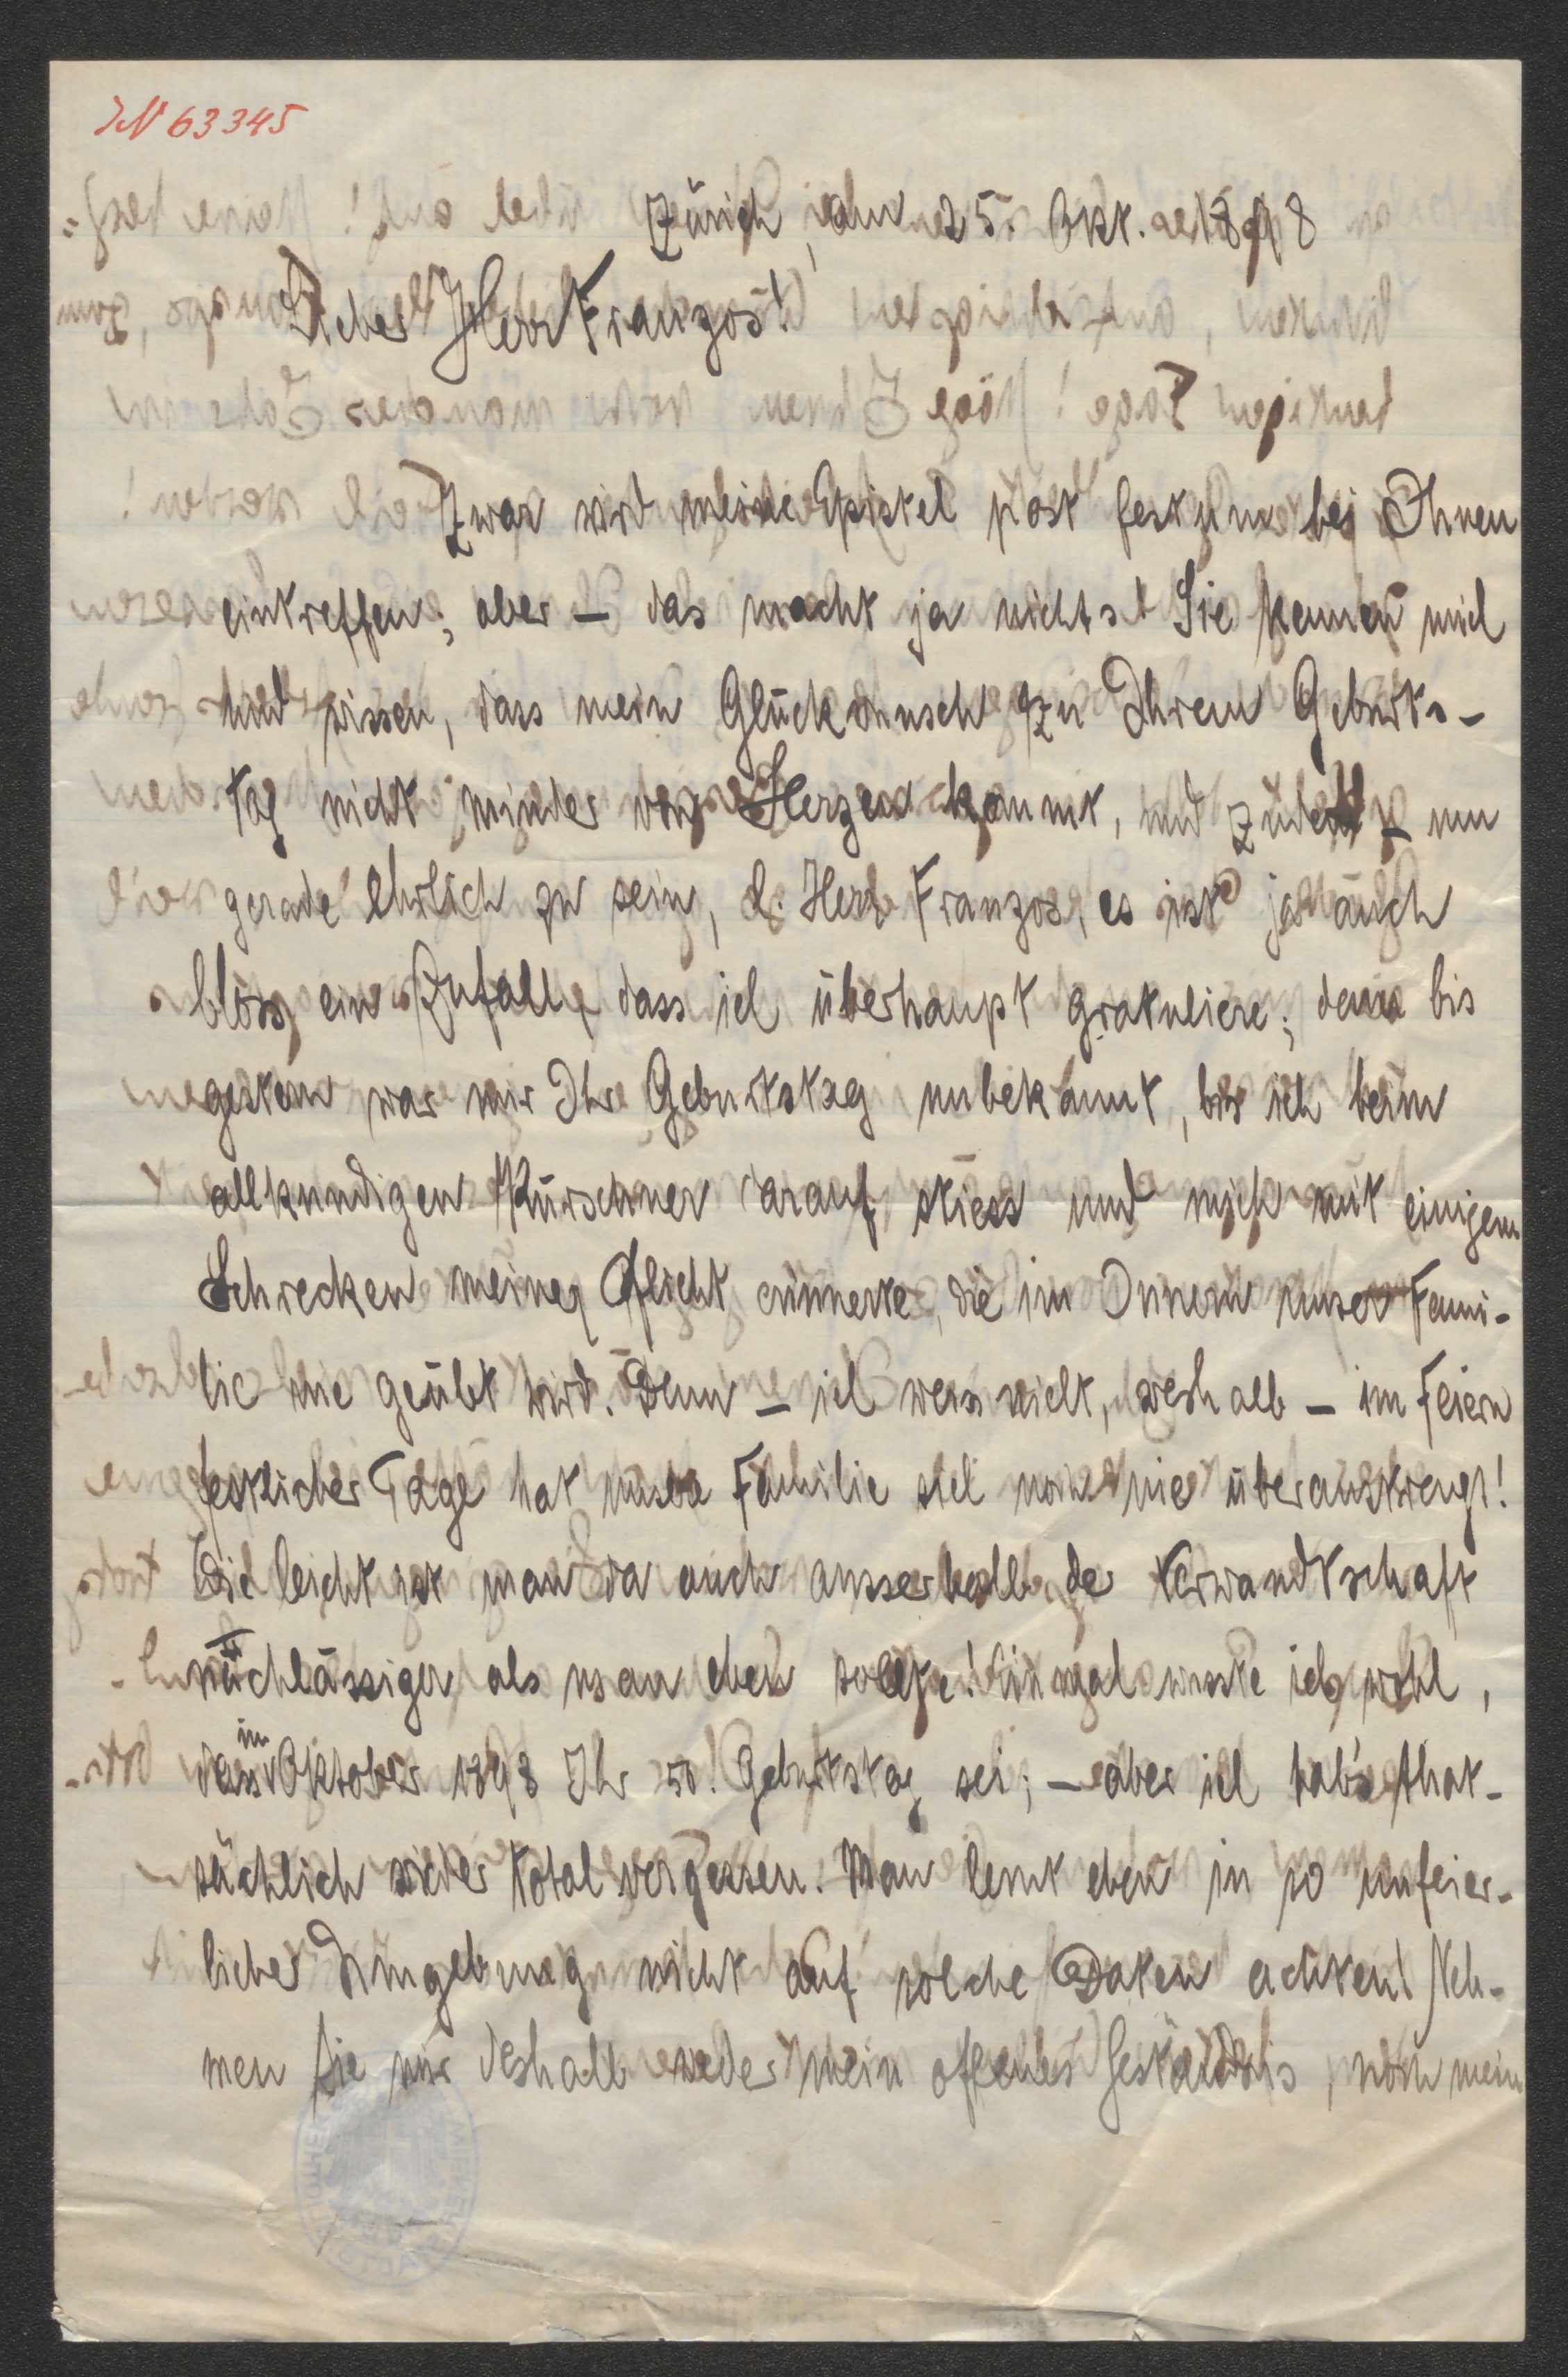 IN 63345
Zürich, den 25. Okt. 1898
Lieber Herr Franzos!
Zwar wird meine Epistel post festum bei Ihnen
eintreffen; aber – das macht ja nichts! Sie kennen mich
und wissen, dass mein Glückwunsch zu Ihrem Geburts-
tag nicht minder von Herzen kommt, und zudem – um
gerade ehrlich zu sein, l. Herr Franzos, es ist ja auch
bloss ein Zufall, dass ich überhaupt gratuliere; denn bis
gestern war mir Ihr Geburtstag unbekannt, bis ich beim
allkundigen Kürschner darauf stiess und mich mit einigem
Schrecken meiner Pflicht erinnerte, die im Innern unser Fami-
lie nie geübt wird. Denn – ich weiss nicht, weshalb – im Feiern
festlicher Tage hat unsere Familie sich noch nie überanstrengt!
Wie leicht ist man da auch ausserhalb der Verwandtschaft
nachlässiger, als man eben sollte! Einmal wusste ich wohl,
dass im Oktober 1898 Ihr 50. Geburtstag sei; – aber ich hab's that-
sächlich wieder total vergessen. Man lernt eben in so unfeier-
licher Umgebung nicht auf solche Daten achten! Neh-
men Sie mir deshalb weder mein offenes Geständnis, noch mein